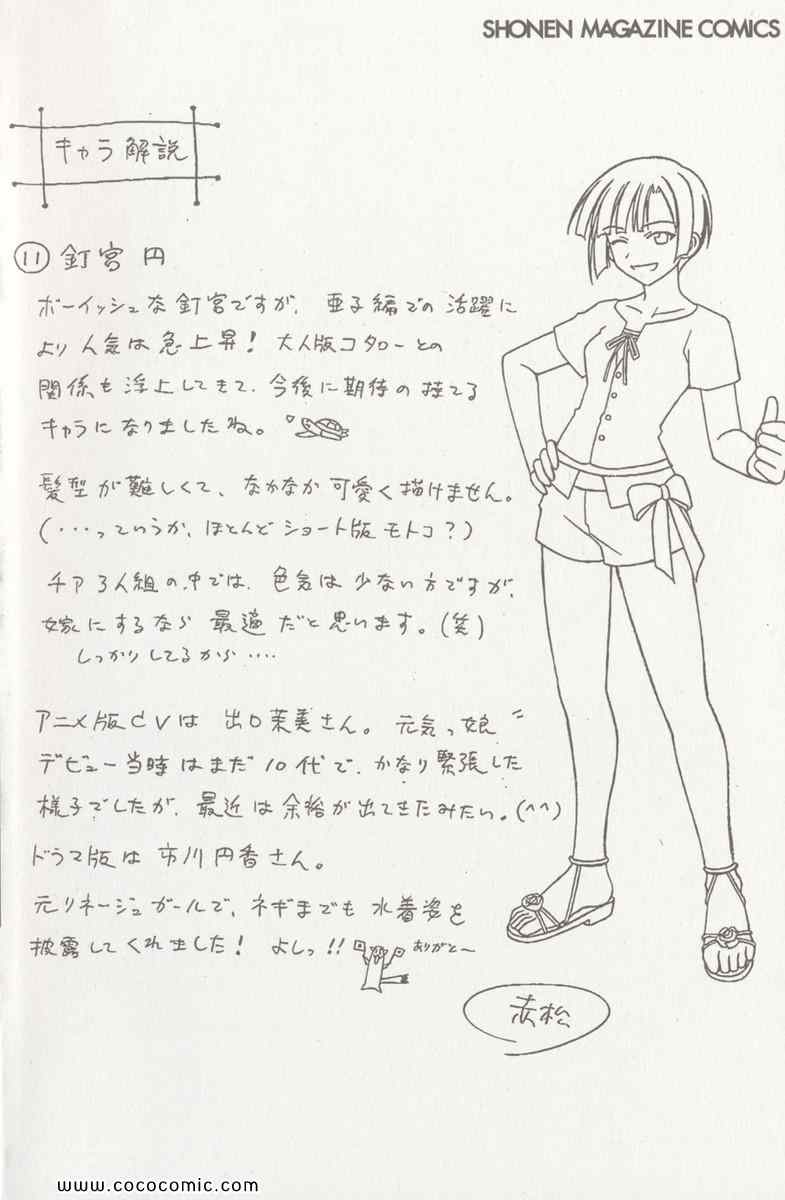 SHONEN MAGAZINE COMICS
キャラ解説
⑪ 釘宮 円
ボーイッシュな釘宮ですが、亜子編での活躍に
より人気は急上昇! 大人版コタローとの
関係も浮上してきて、今後に期待の持てる
キャラになりましたね。
髪型が難しくて、なかなか可愛く描けません。
(・・・っていうか、ほとんどショート版モトコ?)
チア3人組の中では、色気は少ない方ですが、
嫁にするなら最適だと思います。(笑)
しっかりしてるから・・・・
アニメ版CVは 出口茉美さん。元気っ娘
デビュー当時はまだ10代で、かなり緊張した
様子でしたが、最近は余裕が出てきたみたい。(^^)
ドラマ版は 市川円香さん。
元リネージュガールで、ネギまでも水着姿を
披露してくれました! よしっ!!
ありがと〜
赤松
www.cococomic.com